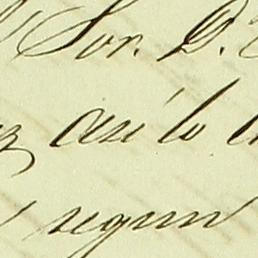 Sor. D.
así lo
segun